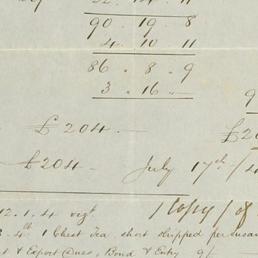 90 . 19 . 8
4 . 10 . 11
86 . 8 . 9
3 . 16 . —
9
£204 . — £20
£204 . — July 17th /4
12.1.4 1 Copy / of
4th 1 Chest Tea short shipped per
& Export Dues, Bond & Entry 9/—